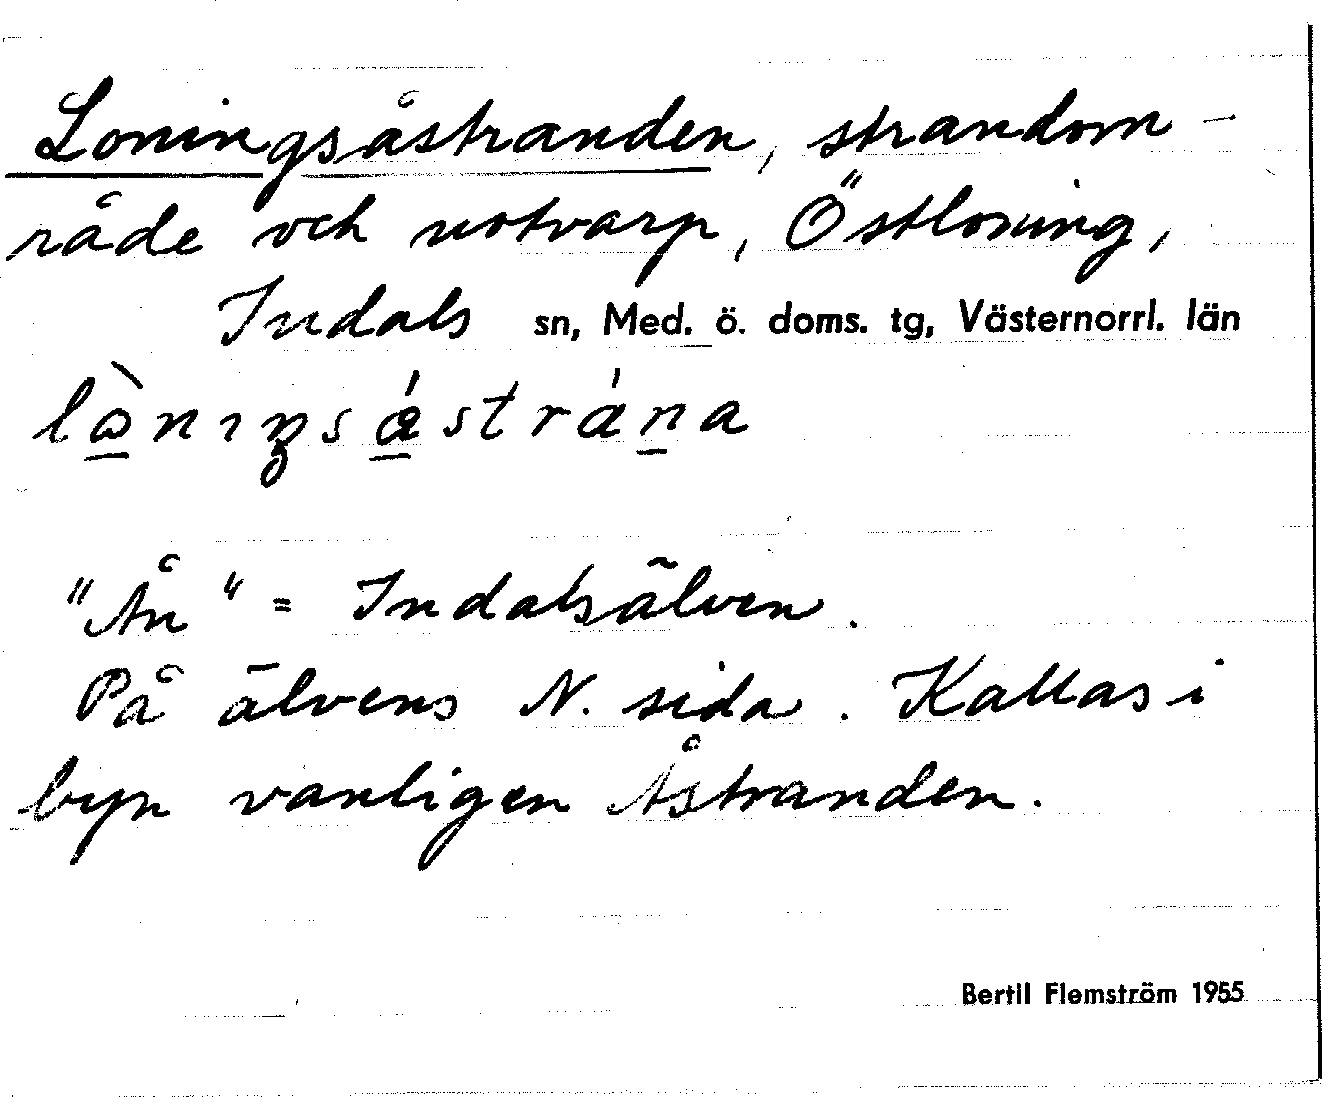 Loningsåstranden, strandom-
råde och notvarp, Östloning,
Indals sn, Med. ö. doms. tg, Västernorrl. län
"Ån" = Indalsälven.
På älvens N. sida. Kallas i
byn vanligen Åstranden.
Bertil Flemström 1955